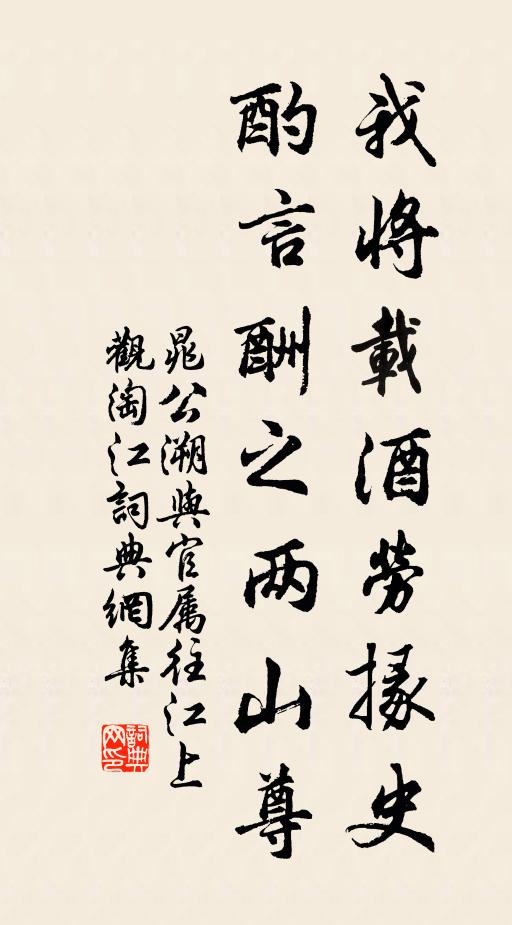 我將載酒勞掾史
酌言酬之两山尊
晁公溯與官属往江上
觀淘江詞典網集
詞典网印